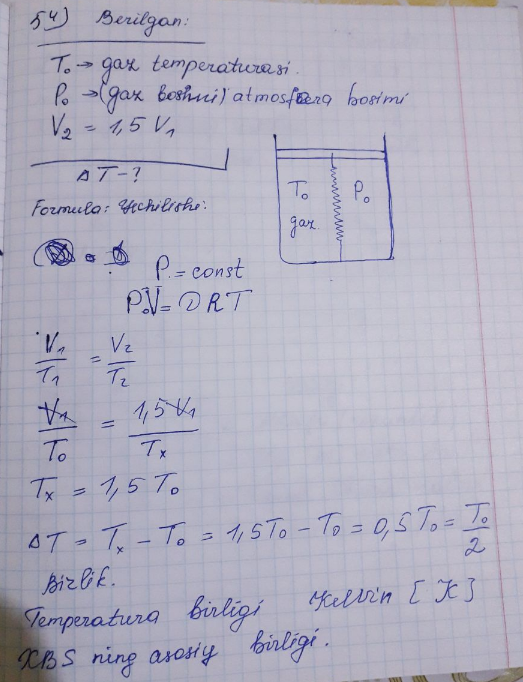 54) Berilgan:
T₀ → gaz temperaturasi.
P₀ → (gaz bosimi) atmosfera bosimi
V₂ = 1,5 V₁
ΔT - ?
T₀ P₀
gaz
Formula: Yechilishi:
P = const
P₀V = νRT
V₁/T₁ = V₂/T₂
V₁/T₀ = 1,5 V₁/Tₓ
Tₓ = 1,5 T₀
ΔT = Tₓ - T₀ = 1,5T₀ - T₀ = 0,5T₀ = T₀/2
Birlik.
Temperatura birligi Kelvin [K]
XBS ning asosiy birligi.